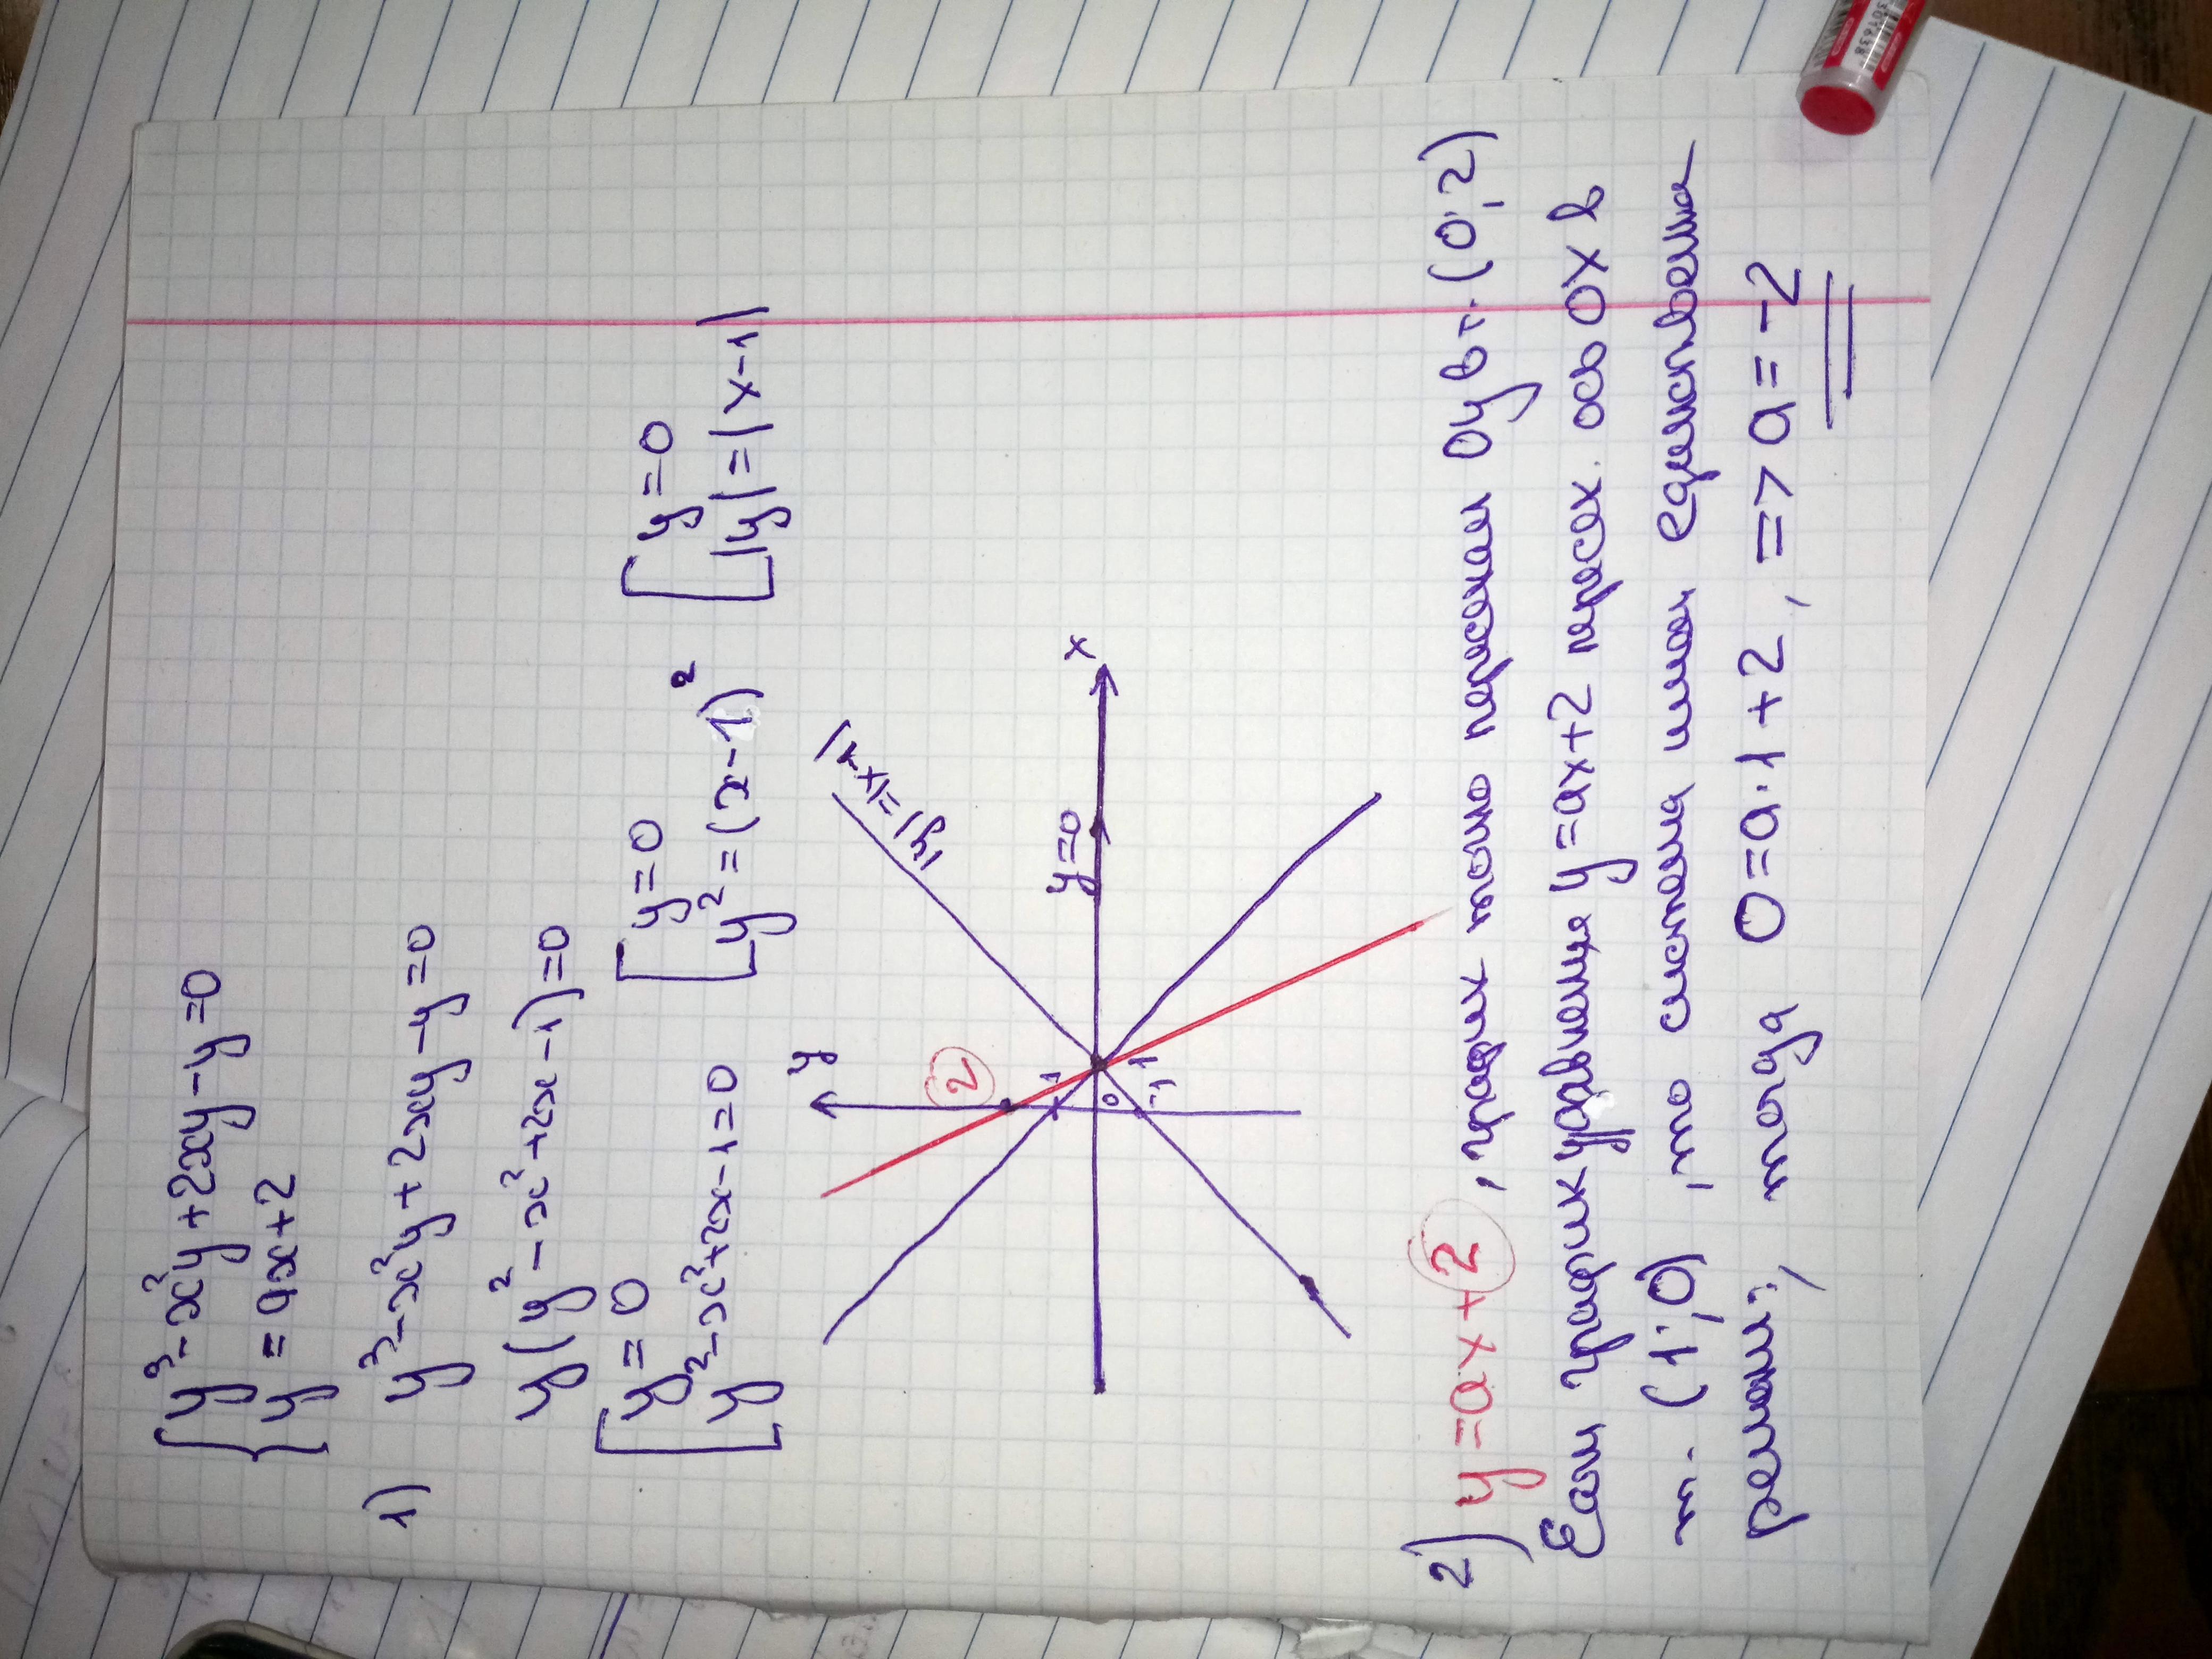 { y³ - x²y + 2xy - y = 0
y = ax + 2
1) y³ - x²y + 2xy - y = 0
y(y² - x² + 2x - 1) = 0
[ y = 0
y² - x² + 2x - 1 = 0
[ y = 0
y² = (x - 1)²
[ y = 0
|y| = |x - 1|
y
2
1
0
-1
1
y = 0
x
|y| = |x - 1|
2) y = ax + 2, график точно пересекает Oy в т. (0; 2)
Если график уравнения y = ax + 2 пересек. ось OX в
т. (1; 0), то система имеет единственное
решение, тогда 0 = a·1 + 2, => a = -2
301638